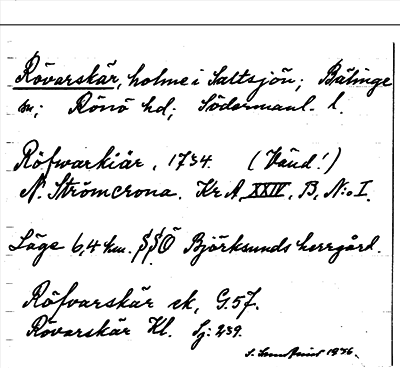 Rövarskär, holme i Saltsjön; Bälinge
sn; Rönö hd; Södermanl. l.
Röfwarkiär, 1734. (Vänd!)
N. Strömcrona. Kr. A. XXIV, B, N:o I.
Läge 6,4 km. SSÖ Björksunds herrgård.
Röfvarskär sk, G. 57.
Rövarskär Kl. Sj: 239.
1936.